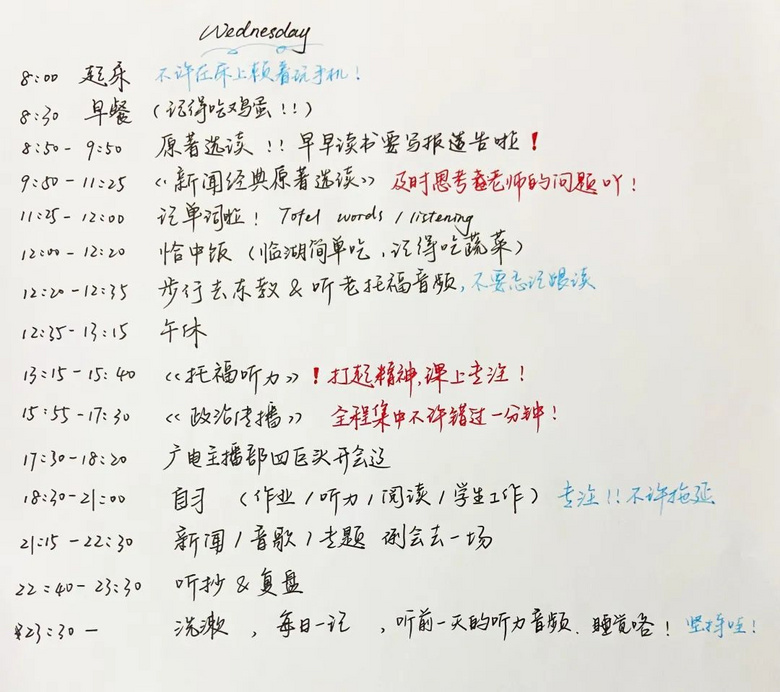 Wednesday
8:00 起床 不许在床上赖着玩手机！
8:30 早餐 （记得吃鸡蛋！！）
8:50-9:50 原著选读！！早早读书要写报告啦！
9:50-11:25 《新闻经典原著选读》 及时思考老师的问题吖！
11:25-12:00 记单词啦！Totel words / listening
12:00-12:20 恰中饭（临湖简单吃，记得吃蔬菜）
12:20-12:35 步行去东教 & 听老托福音频，不要忘记跟读
12:35-13:15 午休
13:15-15:40 《托福听力》！打起精神，课上专注！
15:55-17:30 《政治传播》 全程集中不许错过一分钟！
17:30-18:20 广电主播部四巨头开会
18:30-21:00 自习 （作业 / 听力 / 阅读 / 学生工作） 专注！！不许拖延
21:15-22:30 新闻 / 音歌 / 专题 例会去一场
22:40-23:30 听抄 & 复盘
23:30- 洗漱，每日一记，听前一天的听力音频、睡觉咯！坚持哇！